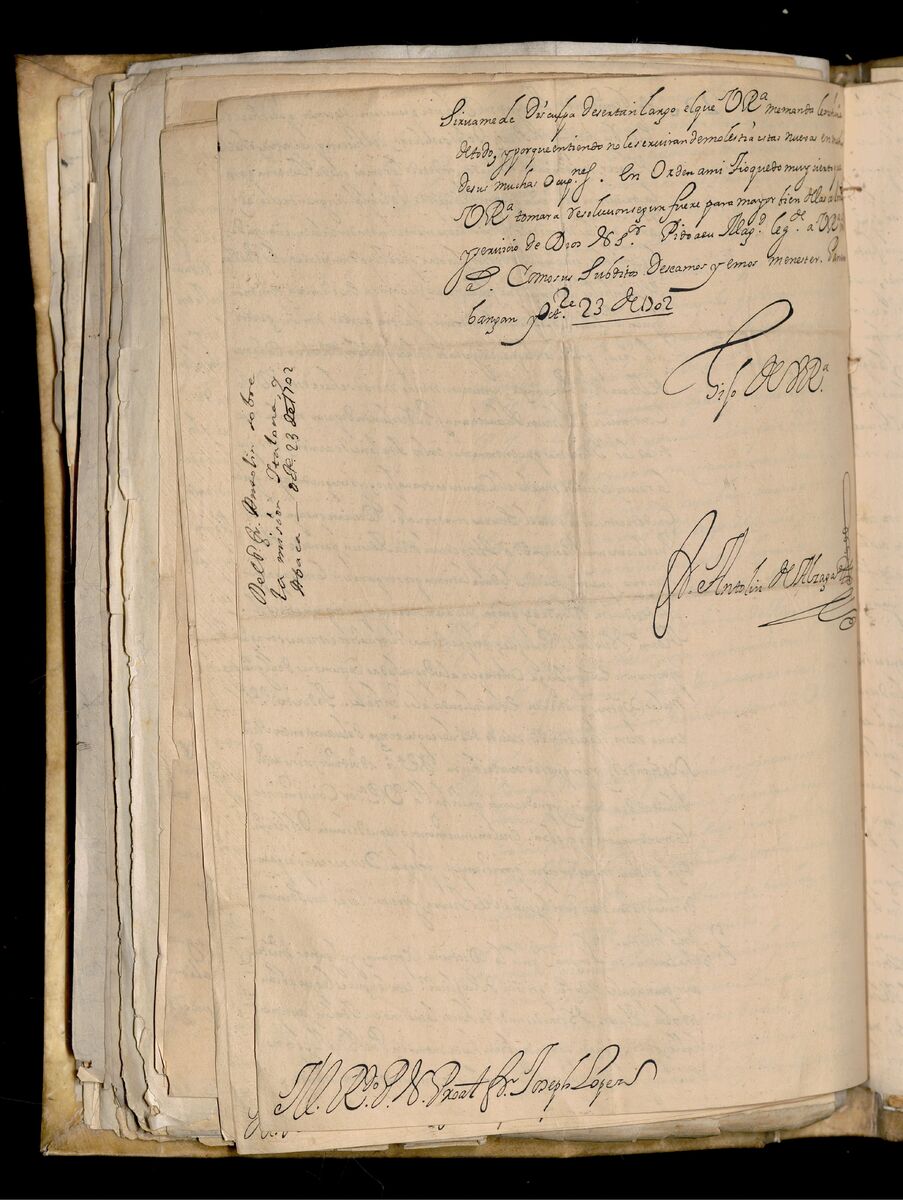 Sirvame de Disculpa de ser tan largo el que VRª me manda le avise
de todo, y porque entiendo no le serviran de molestia estas nuevas en
de sus muchas Ocup.nes. En Orden a mi Tio quedo muy cierto
VRª tomara resolucion segun fuere para mayor bien de las
y servicio de Dios N. Sr. Pido a su Mag.d leg.de a VRª
Como sus Subditos Deseamos y emos menester.
bangan y Oct.re 23 de 1702
Hijo de VRª.
Fr. Antolin de Alzaga
Del P. Fr. Antolin sobre
la mision Italona, y
Abaca — oct. 23 de 1702
M. R.do P. N. Proal Fr. Joseph Lopez